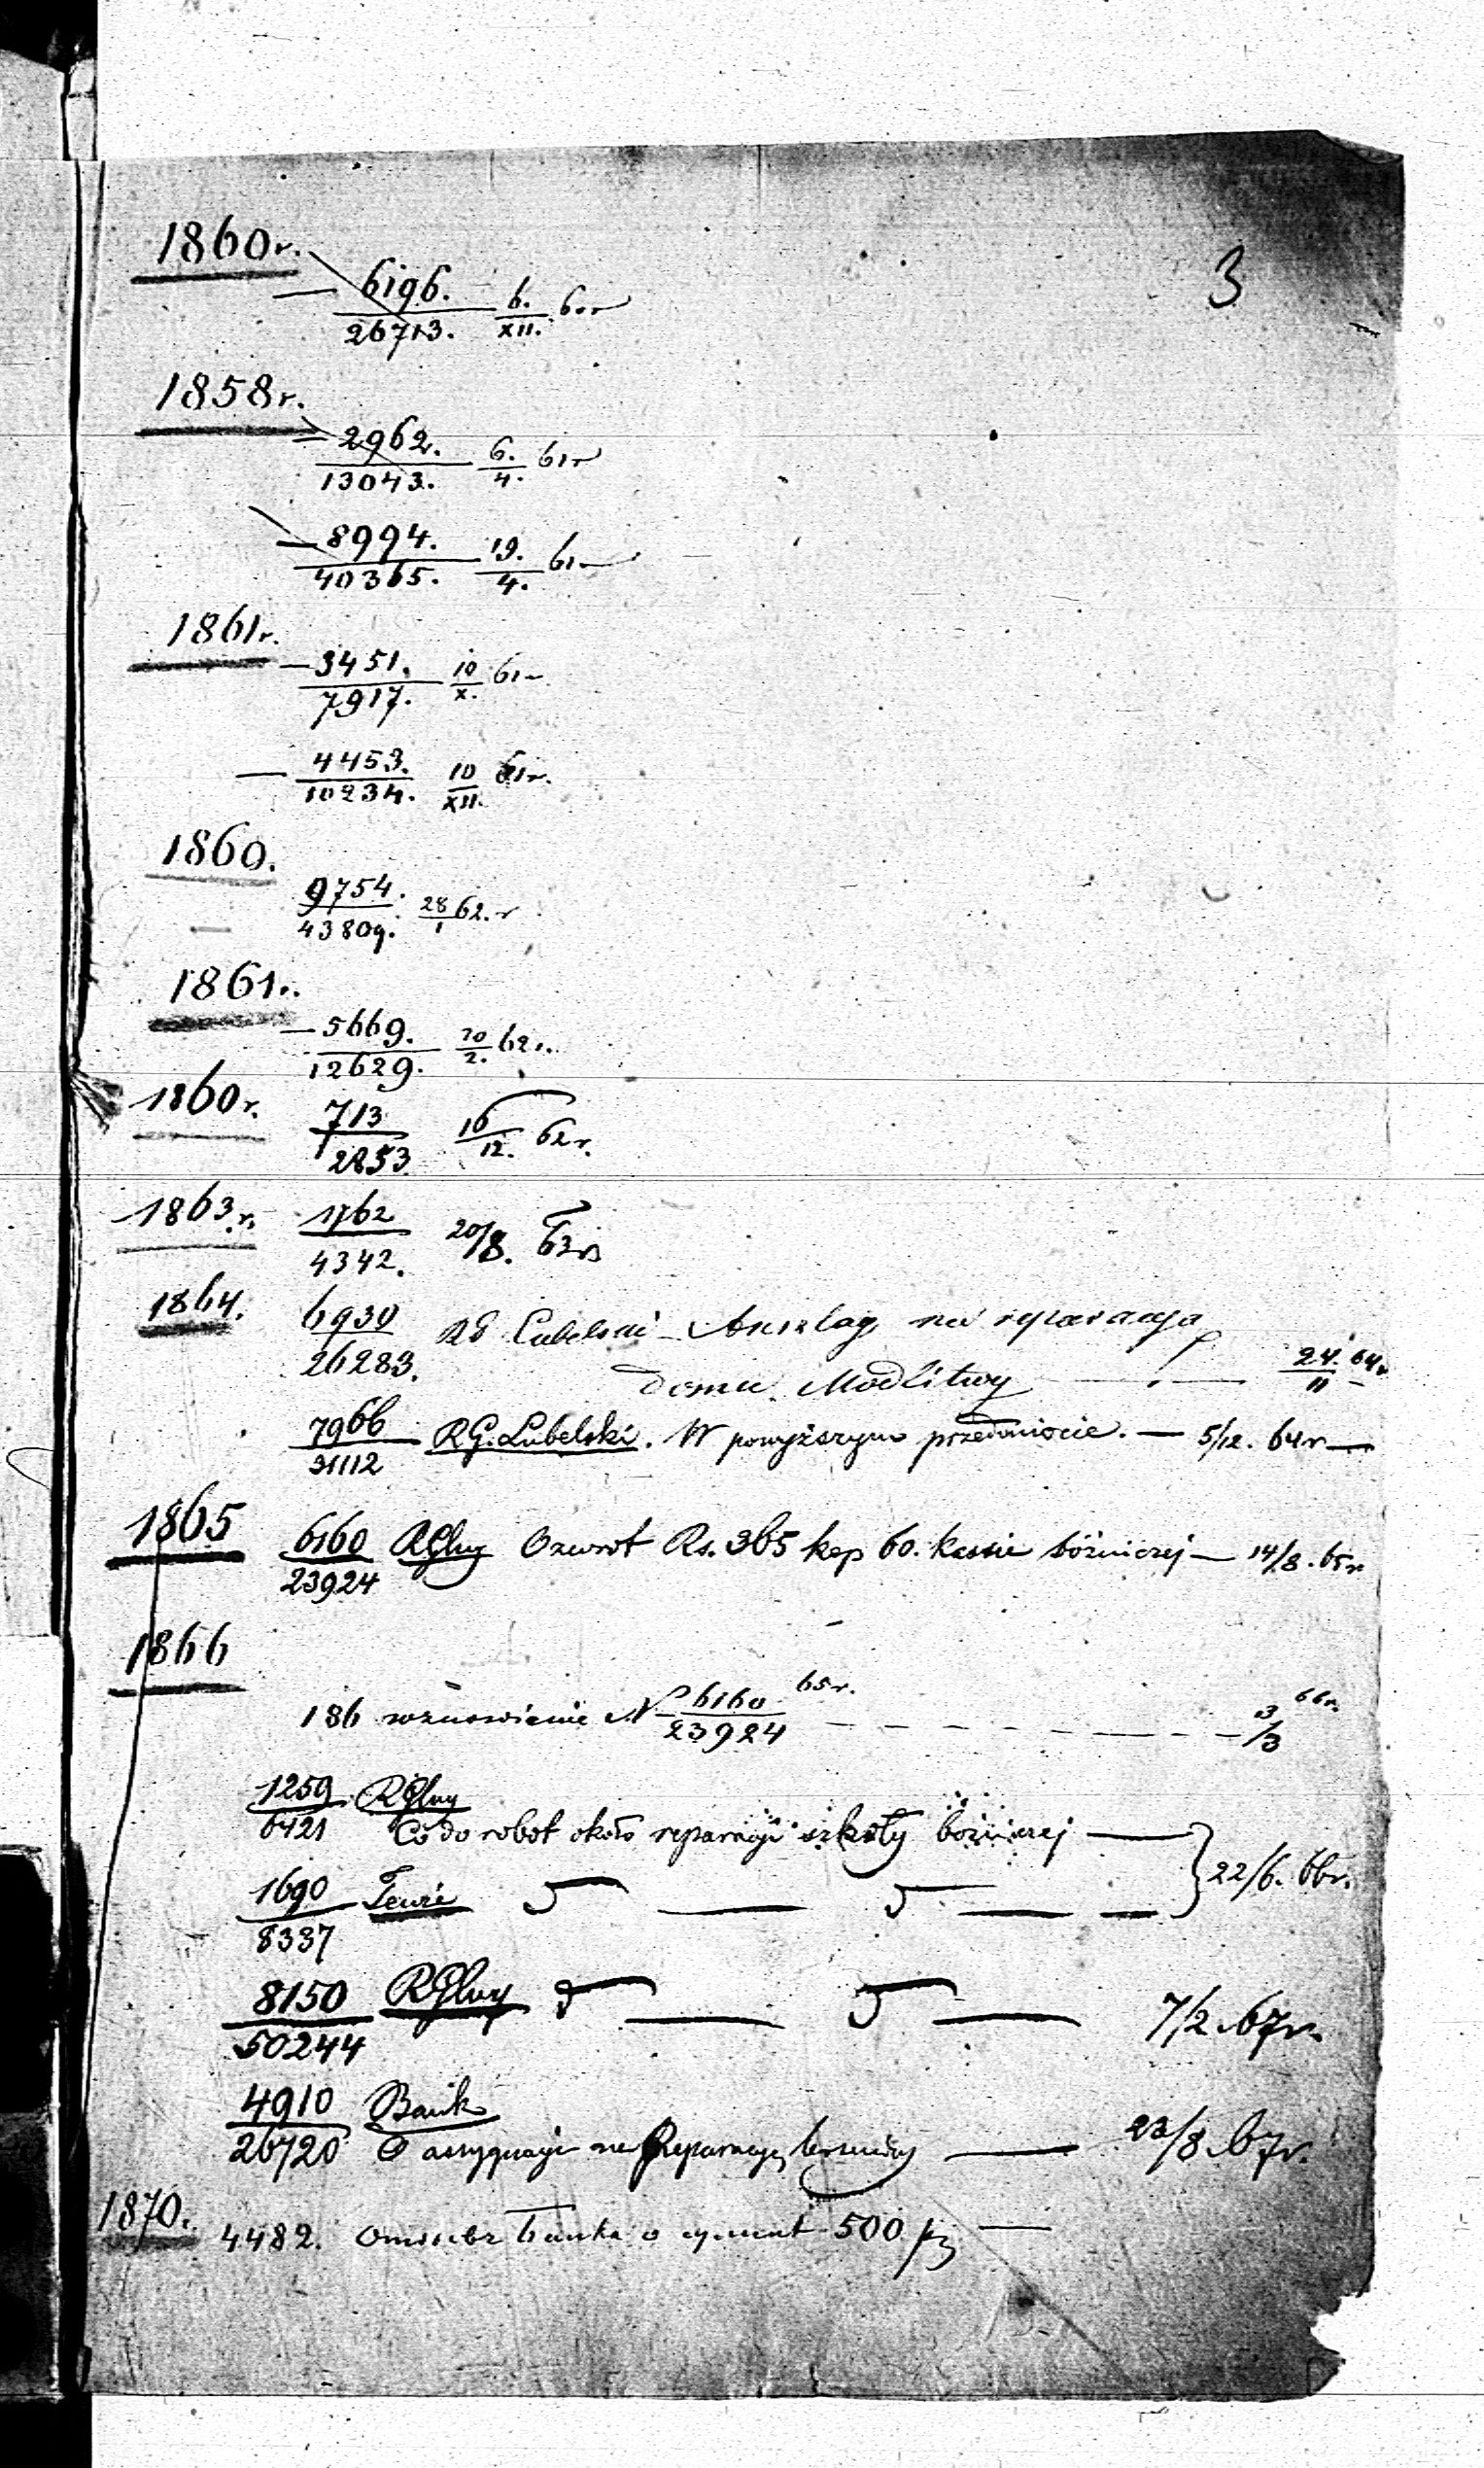 3
1860r.
6196.
26713. 6./XII. 60r
1858r.
2962.
13043. 6./4. 61r
8994.
40365. 19./4. 61
1861r.
3451.
7917. 10/X. 61r
4453.
10234. 10/XII. 61r.
1860.
9754.
43809. 28/1 62.r
1861..
5669.
12629. 20/2. 62r.
1860r.
713
2853 16/12. 62r.
1863.r.
1762
4342. 20/8. 63r
1864.
6930 RG Lubelski Anszlag na reparacyą
26283.
Domu Modlitwy — 24./11 64r
7966 RG. Lubelski. W powyższym przedmiocie. — 5/12. 64r —
31112
1865
6160 RGlny Ozwrot Rs. 365 kop 60. kassie bóżniczej — 14/8. 65r
23924
1866
186 wznowienie N 6160/23924 65r. — 3/3 66r.
1259 RGlny
6421 Co do robot około reparacyi szkoły bożniczej —
22/6. 66r.
1690
8337
8150 RGlny
50244 7/2. 67r.
4910 Bank
26720 O assygnacyi na Reparacyę — 23/8. 67r.
1870.
4482. Banku o 500